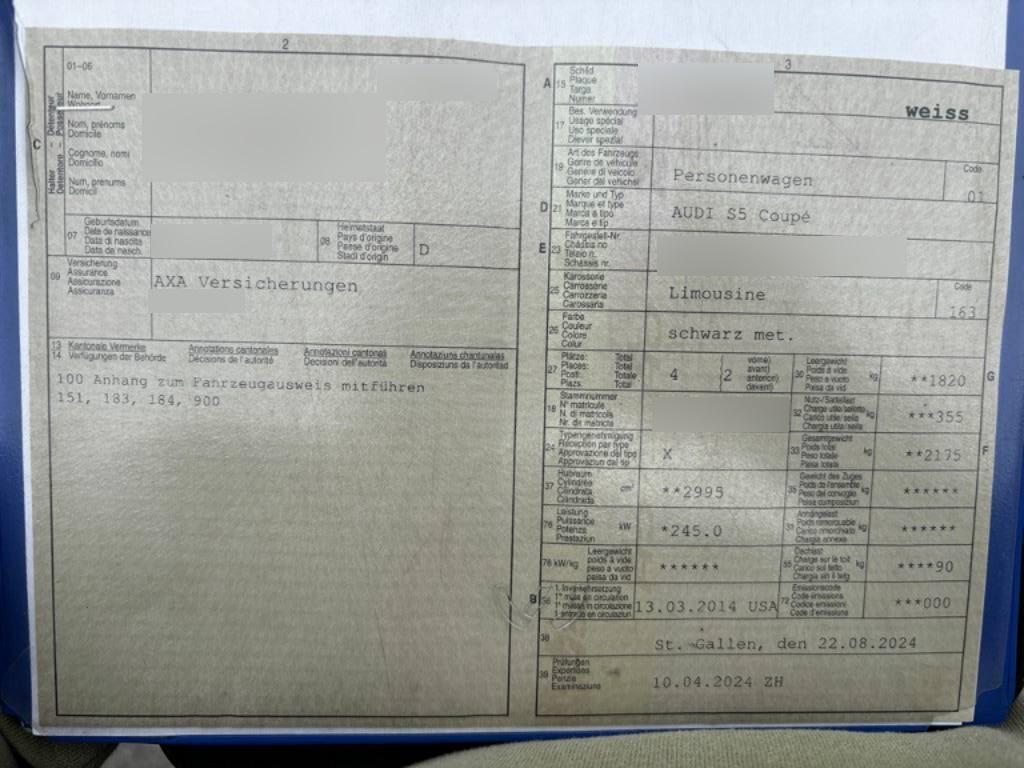 2
01-06
Detenteur
Halter
Detentore
Name, Vornamen
Wohnort
Nom, prénoms
Domicile
Cognome, nomi
Domicilio
Num, prenums
Domicil
C
07
Geburtsdatum
Date de naissance
Data di nascita
Data da nasch.
08
Heimatstaat
Pays d'origine
Paese d'origine
Stadi d'origin
D
09
Versicherung
Assurance
Assicurazione
Assicuranza
AXA Versicherungen
13 Kantonale Vermerke
14 Verfügungen der Behörde
Annotations cantonales
Décisions de l'autorité
Annotazioni cantonali
Decisioni dell'autorità
Annotaziuns chantunalas
Disposiziuns da l'autoritad
100 Anhang zum Fahrzeugausweis mitführen
151, 183, 184, 900
3
A 15
Schild
Plaque
Targa
Numer
weiss
17
Bes. Verwendung
Usage spécial
Uso speciale
Diever spezial
19
Art des Fahrzeugs
Genre de véhicule
Genere di veicolo
Gener dal vehichel
Personenwagen
Code
01
D 21
Marke und Typ
Marque et type
Marca e tipo
Marca e tip
AUDI S5 Coupé
E 23
Fahrgestell-Nr.
Châssis no
Telaio n.
Schassis nr.
25
Karosserie
Carrosserie
Carrozzeria
Carossaria
Limousine
Code
163
26
Farbe
Couleur
Colore
Colur
schwarz met.
27
Plätze: Total
Places: Total
Posti: Totale
Plazs: Total
4
(2
vorne)
avant)
anteriori)
davant)
30
Leergewicht
Poids à vide
Peso a vuoto
Paisa da vid
kg
**1820
G
18
Stammnummer
N° matricule
N. di matricola
Nr. da matricla
32
Nutz-/Sattellast
Charge utile/sellette
Carico utile/sella
Chargia utila/sella
kg
***355
24
Typengenehmigung
Réception par type
Approvazione del tipo
Approvaziun dal tip
X
33
Gesamtgewicht
Poids total
Peso totale
Paisa totala
kg
**2175
F
37
Hubraum
Cylindrée
Cilindrata
Cilindrada
cm³
**2995
35
Gewicht des Zuges
Poids de l'ensemble
Peso del convoglio
Paisa cumposiziun
kg
******
76
Leistung
Puissance
Potenza
Prestaziun
kW
*245.0
31
Anhängelast
Poids remorquable
Carico rimorchiato
Chargia annexa
kg
******
78 kW/kg
Leergewicht
poids à vide
peso a vuoto
paisa da vid
******
55
Dachlast
Charge sur le toit
Carico sul tetto
Chargia sin il tetg
kg
****90
B 36
1. Inverkehrsetzung
1re mise en circulation
1a messa in circolazione
1. entrada en circulaziun
13.03.2014 USA
72
Emissionscode
Code émissions
Codice emissioni
Code d'emissiuns
***000
38
St. Gallen, den 22.08.2024
39
Prüfungen
Expertises
Perizie
Examinaziuns
10.04.2024 ZH